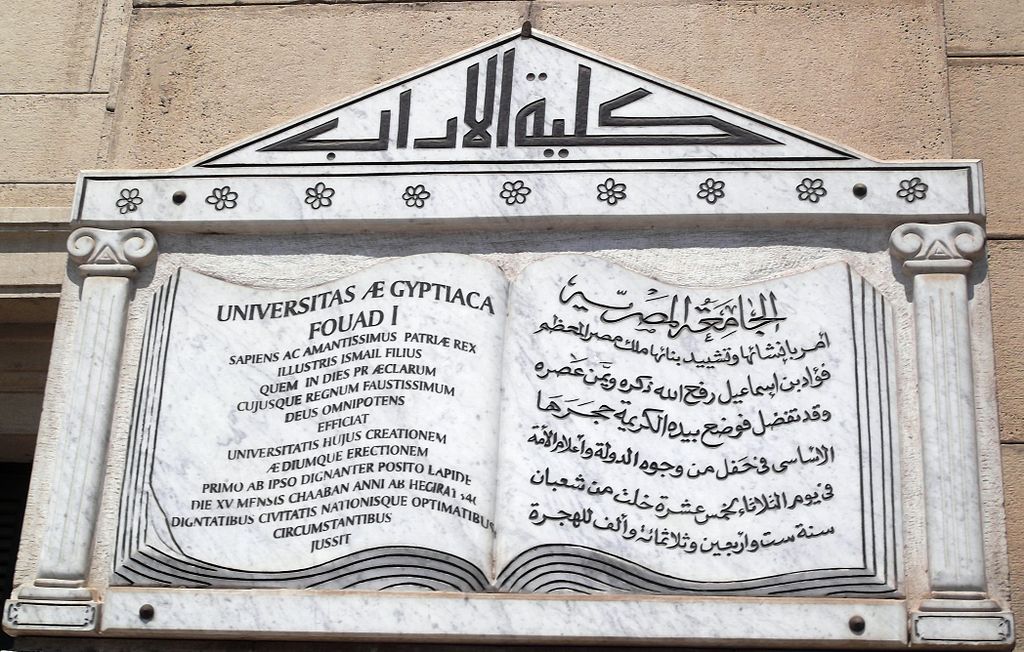 كلية الاداب
UNIVERSITAS Æ GYPTIACA
FOUAD I
SAPIENS AC AMANTISSIMUS PATRIÆ REX
ILLUSTRIS ISMAIL FILIUS
QUEM IN DIES PR ÆCLARUM
CUJUSQUE REGNUM FAUSTISSIMUM
DEUS OMNIPOTENS
EFFICIAT
UNIVERSITATIS HUJUS CREATIONEM
ÆDIUMQUE ERECTIONEM
PRIMO AB IPSO DIGNANTER POSITO LAPIDE
DIE XV MENSIS CHAABAN ANNI AB HEGIRAI
DIGNTATIBUS CIVITATIS NATIONISQUE OPTIMATIBUS
CIRCUMSTANTIBUS
JUSSIT
الجامعة المصرية
أمر بإنشائها وتشييد بنائها ملك مصر المعظم
فؤاد بن إسماعيل رفع الله ذكره ويمن عصره
وقد تفضل فوضع بيده الكريمة حجرها
الأساسى فى حفل من وجوه الدولة وأعلام الأمة
فى يوم الثلاثاء لخمس عشرة خلت من شعبان
سنة ست وأربعين وثلاثمائة وألف للهجرة